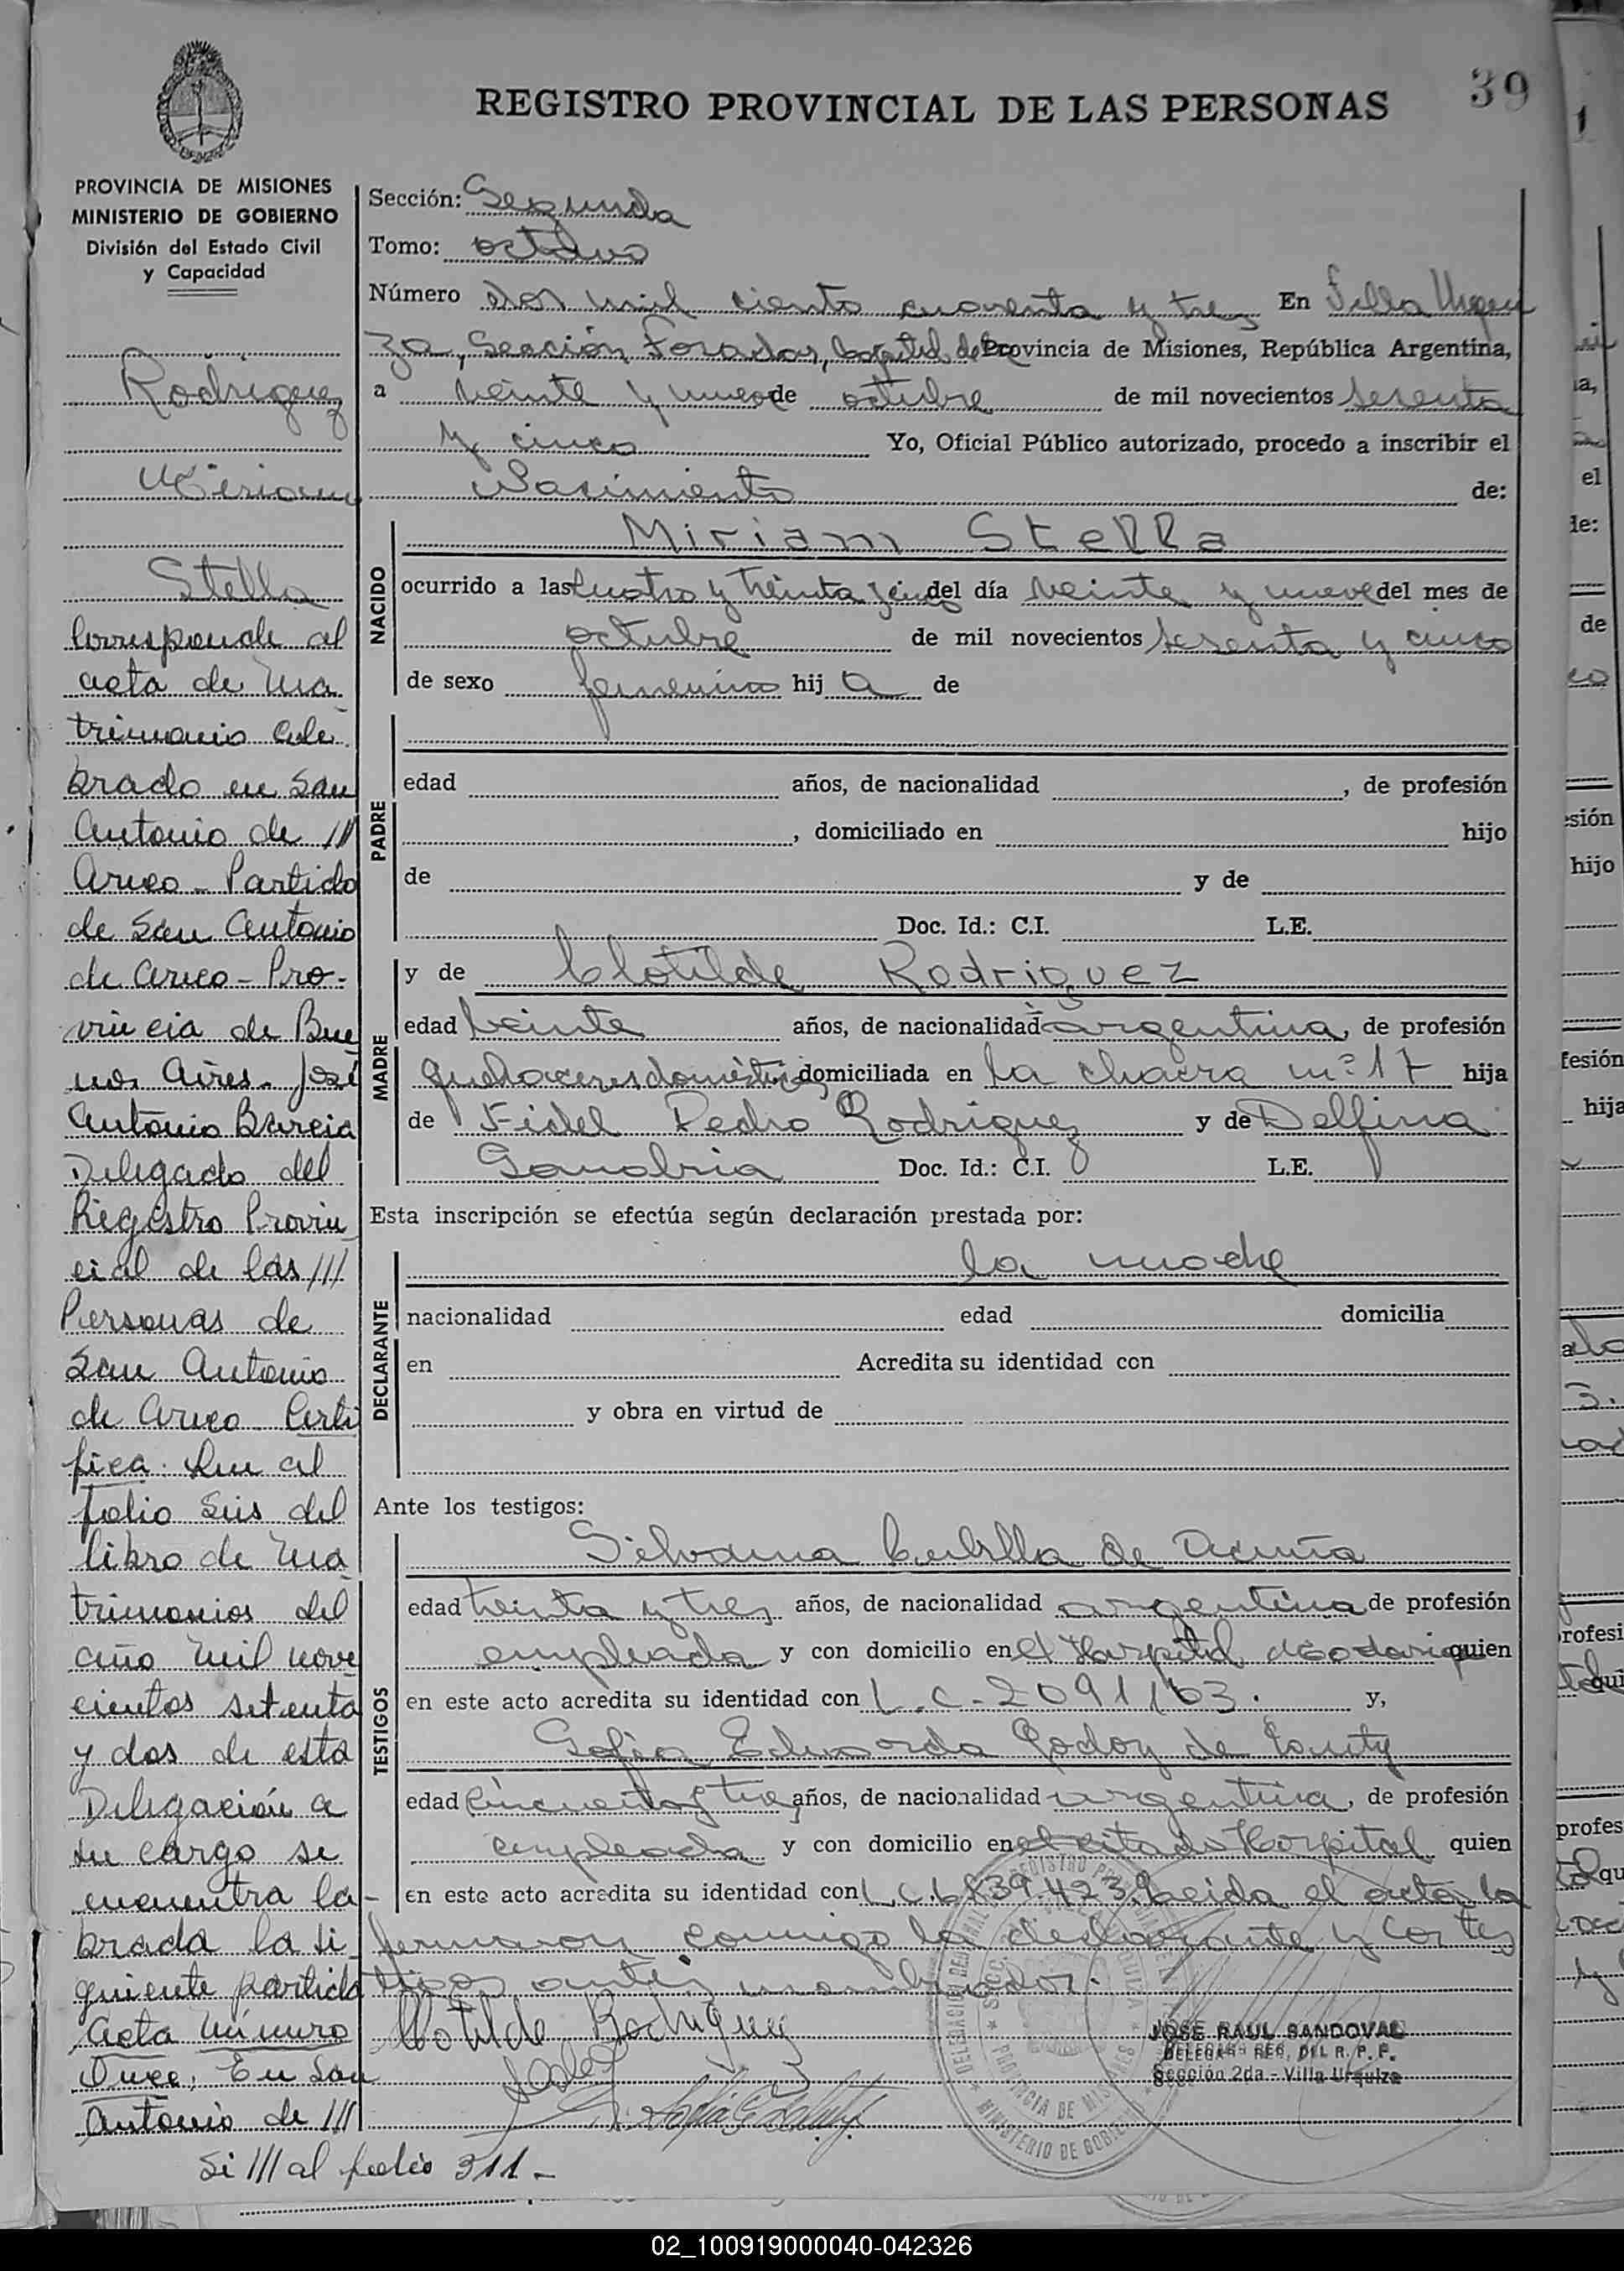 39
REGISTRO PROVINCIAL DE LAS PERSONAS
PROVINCIA DE MISIONES
MINISTERIO DE GOBIERNO
División del Estado Civil
y Capacidad
Rodriguez
Miriam
Stella
Corresponde al
acta de Ma
trimonio cele
brado en San
Antonio de ///
Areco - Partido
de San Antonio
de Areco - Pro-
vincia de Bue
nos Aires. José
Antonio Barcia
Delegado del
Registro Provin
cial de las ///
Personas de
San Antonio
de Areco. Certi
fica: Que al
folio Seis del
libro de Ma
trimonios del
año Mil nove
cientos setenta
y dos de esta
Delegación a
su cargo se
encuentra la-
brada la si
guiente partida
Acta Número
Once: En San
Antonio de ///
Si /// al folio 311 -
Sección: Segunda
Tomo: octavo
Número dos mil ciento cuarenta y tres En Villa Urqui
za, Sección Posadas, Capital de Provincia de Misiones, República Argentina,
a veinte y nueve de octubre de mil novecientos sesenta
y cinco Yo, Oficial Público autorizado, procedo a inscribir el
Nacimiento de:
NACIDO
Miriam Stella
ocurrido a las cuatro y treinta y cinco del día veinte y nueve del mes de
octubre de mil novecientos sesenta y cinco
de sexo femenino hij a de
PADRE
edad años, de nacionalidad , de profesión
, domiciliado en hijo
de y de
Doc. Id.: C.I. L.E.
MADRE
y de Clotilde Rodriguez
edad veinte años, de nacionalidad argentina, de profesión
quehaceres domésticos domiciliada en la chacra nº 17 hija
de Fidel Pedro Rodriguez y de Delfina
Doc. Id.: C.I. L.E.
Esta inscripción se efectúa según declaración prestada por:
DECLARANTE
la madre
nacionalidad edad domicilia
en Acredita su identidad con
y obra en virtud de
Ante los testigos:
TESTIGOS
Silvana Cubilla de Acuña
edad treinta y tres años, de nacionalidad argentina de profesión
empleada y con domicilio en el Hospital quien
en este acto acredita su identidad con L.C. 2091163. y,
Sofia Eduarda Godoy de
edad cincuenta y tres años, de nacionalidad argentina, de profesión
empleada y con domicilio en el citado Hospital quien
en este acto acredita su identidad con L.C. Leida el acta la
firmaron conmigo la declarante y los tes
tigos antes nombrados.
Clotilde Rodriguez
JOSE RAUL SANDOVAL
DELEGADO REG. DEL R. P. P.
Sección 2da.- Villa Urquiza
PROVINCIA DE MISIONES
MINISTERIO DE GOBIERNO
02_100919000040-042326